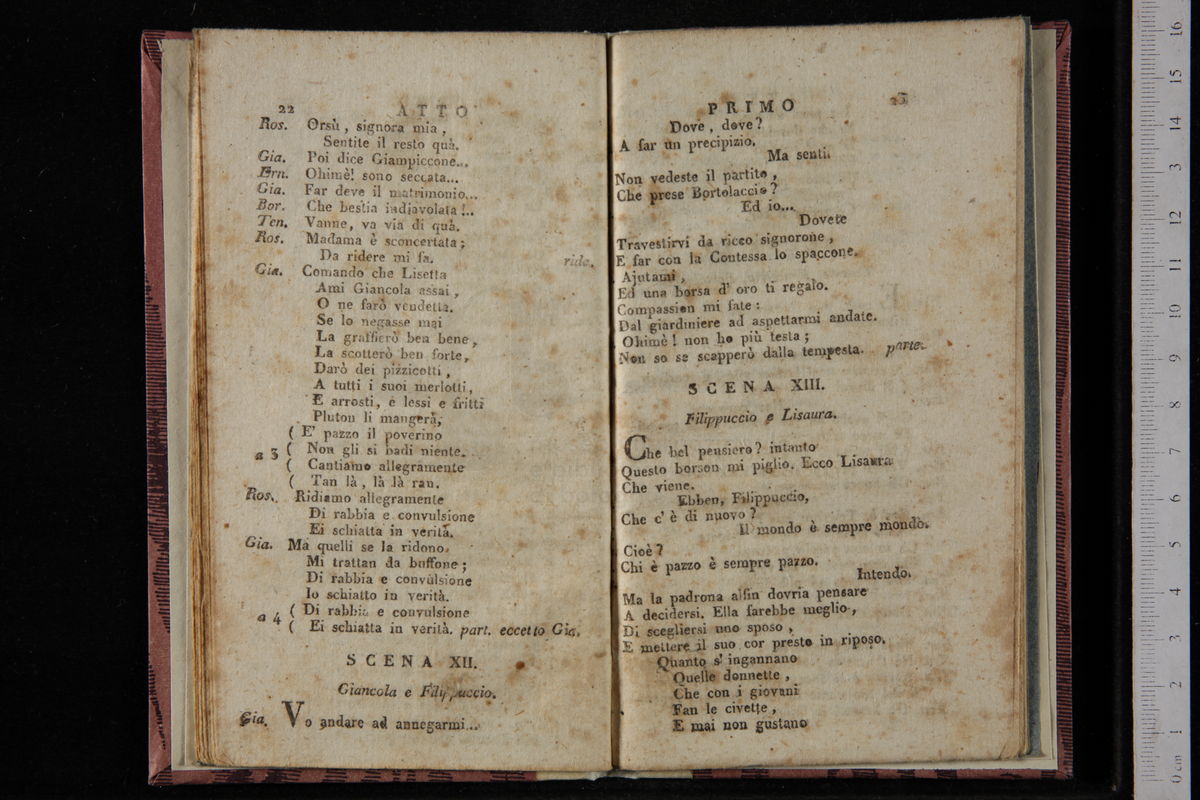 22 ATTO
Ros. Orsù, signora mia,
Sentite il resto quà.
Gia. Poi dice Giampiccone...
Ern. Ohimè! sono seccata...
Gia. Far deve il matrimonio...
Bor. Che bestia indiavolata!..
Ten. Vanne, va via di quà.
Ros. Madama è sconcertata;
Da ridere mi fa. ride.
Gia. Comando che Lisetta
Ami Giancola assai,
O ne farò vendetta.
Se lo negasse mai
La graffierò ben bene,
La scotterò ben forte,
Darò dei pizzicotti,
A tutti i suoi merlotti,
E arrosti, e lessi e fritti
Pluton li mangerà,
( E' pazzo il poverino
a 3 ( Non gli si badi niente.
( Cantiamo allegramente
( Tan là, là là ran.
Ros. Ridiamo allegramente
Di rabbia e convulsione
Ei schiatta in verità.
Gia. Ma quelli se la ridono.
Mi trattan da buffone;
Di rabbia e convulsione
Io schiatto in verità.
a 4 ( Di rabbia e convulsione
( Ei schiatta in verità. part. eccetto Gia.
SCENA XII.
Giancola e Filippuccio.
Gia. Vo andare ad annegarmi...
PRIMO 23
Dove, dove?
A far un precipizio.
Ma senti.
Non vedeste il partito,
Che prese Bortolaccio?
Ed io...
Dovete
Travestirvi da ricco signorone,
E far con la Contessa lo spaccone.
Ajutami,
Ed una borsa d' oro ti regalo.
Compassion mi fate:
Dal giardiniere ad aspettarmi andate.
Ohimè! non ho più testa;
Non so se scapperò dalla tempesta. parte.
SCENA XIII.
Filippuccio e Lisaura.
Che bel pensiero? intanto
Questo borson mi piglio. Ecco Lisaura
Che viene.
Ebben, Filippuccio,
Che c' è di nuovo?
Il mondo è sempre mondo.
Cioè?
Chi è pazzo è sempre pazzo.
Intendo.
Ma la padrona alfin dovria pensare
A decidersi. Ella farebbe meglio,
Di scegliersi uno sposo,
E mettere il suo cor presto in riposo.
Quanto s' ingannano
Quelle donnette,
Che con i giovani
Fan le civette,
E mai non gustano
0 cm 1 2 3 4 5 6 7 8 9 10 11 12 13 14 15 16